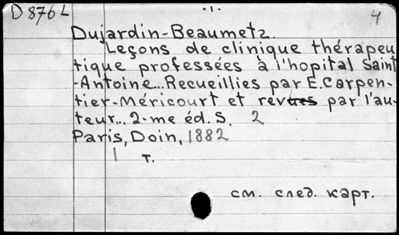 D 876 L
4
Dujardin-Beaumetz.
Leçons de clinique thérapeu
tique professées à l'hopital Saint
-Antoine... Recueillies par E. Carpen-
tier-Méricourt et revues par l'au-
teur... 2-me éd. S. 2
Paris, Doin, 1882
1 т.
см. след. карт.